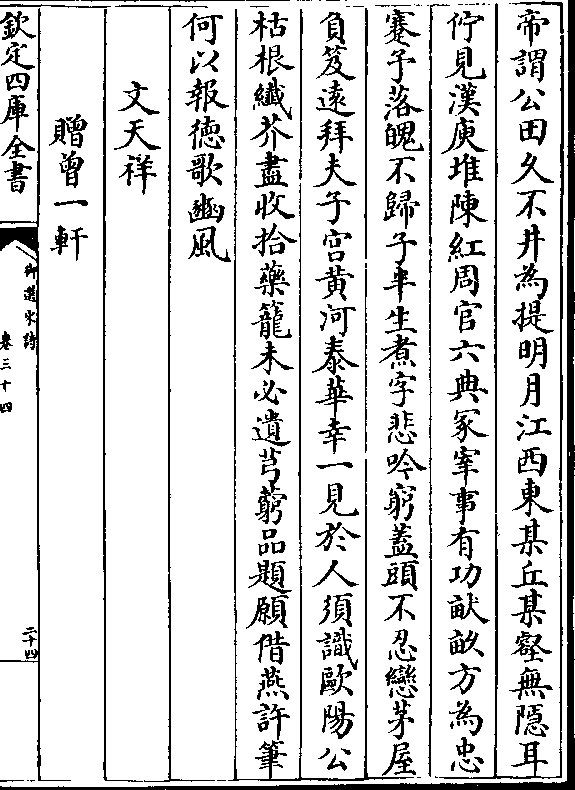 帝謂公田久不井為提明月江西東某丘某壑無隱耳
佇見漢庾堆陳紅周官六典冢宰事有功畎畝方為忠
蹇予落魄不歸予半生煮字悲吟窮蓋頭不忍戀茅屋
負笈遠拜夫子宮黄河泰華幸一見於人須識歐陽公
枯根纖芥盡收拾藥籠未必遺芎藭品題願借燕許筆
何以報徳歌豳風
文天祥
贈曾一軒
欽定四庫全書
御選宋詩
卷三十四
二十四